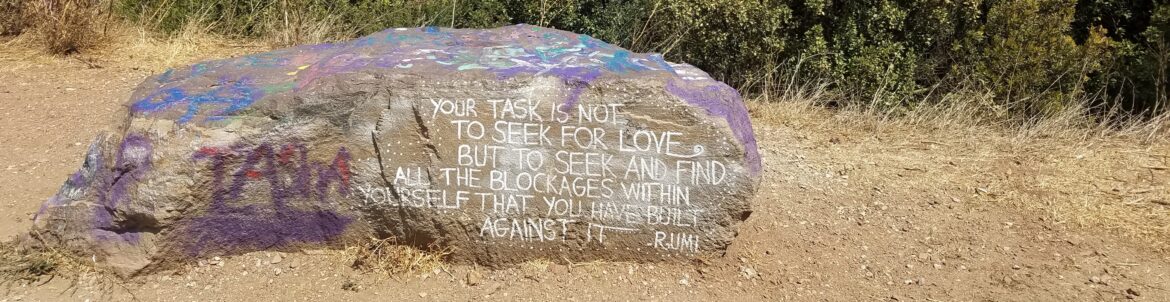 YOUR TASK IS NOT
TO SEEK FOR LOVE
BUT TO SEEK AND FIND
ALL THE BLOCKAGES WITHIN
YOURSELF THAT YOU HAVE BUILT
AGAINST IT
-RUMI